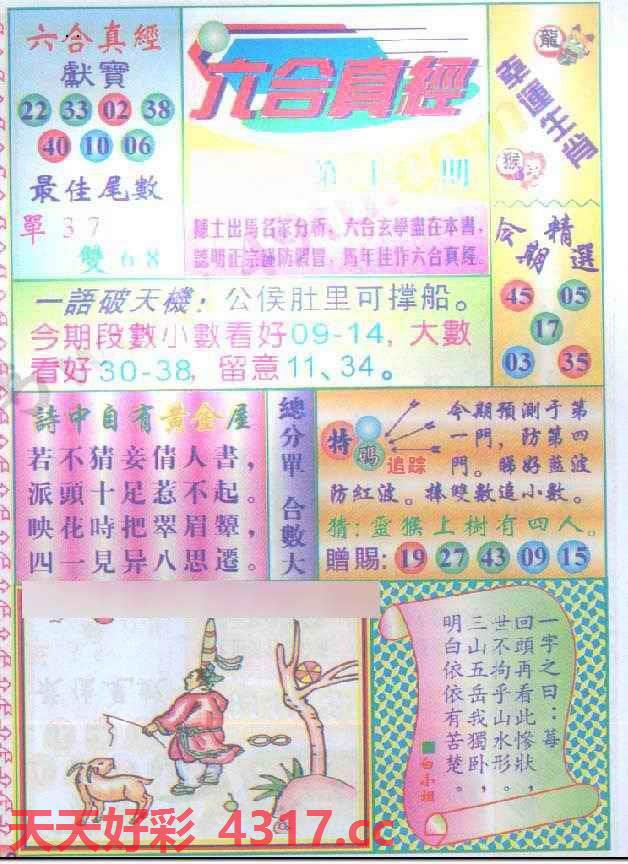 六合真經
獻寶
22 33 02 38
40 10 06
最佳尾數
單 3 7
雙 6 8
六合真經
第十 期
龍
幸運生肖
猴
今期精選
45 05
17
03 35
一語破天機：公侯肚里可撑船。
今期段數小數看好09-14, 大數
看好30-38, 留意11、34。
詩中自有黃金屋
若不猜妾倩人書，
派頭十足惹不起。
映花時把翠眉顰，
四一見异八思遷。
總分單 合數大
特碼
追踪
今期預測于第
一門，防第四
門。睇好藍波
防紅波。捧雙數追小數。
猜：靈猴上樹有四人。
贈賜：19 27 43 09 15
一字之曰：莓
回頭再看此慘狀，
世不拘乎山水形，
三山五岳我獨卧，
明白依依有苦楚。
■白小姐
天天好彩 4317.cc